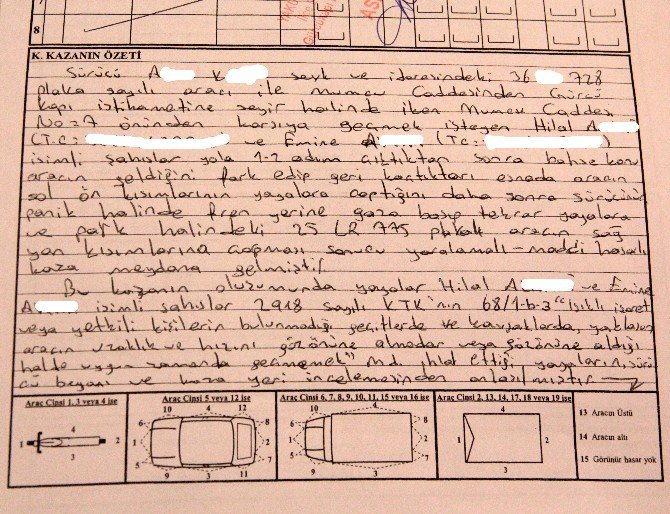 7
8
K. KAZANIN ÖZETİ
Sürücü A K sevk ve idaresindeki 36 728
plaka sayılı aracı ile Mumcu Caddesinden Gürcü
kapı istikametine seyir halinde iken Mumcu Caddesi
No=7 önünden karşıya geçmek isteyen Hilal A
(T.C= ve Emine A (Tc=
isimli şahıslar yola 1-2 adım çıktıktan sonra bahse konu
aracın geldiğini fark edip geri kaçtıkları esnada aracın
sol ön kısımlarının yayalara çaptığını daha sonra sürücünün
panik halinde fren yerine gaza basıp tekrar yayalara
ve park halindeki 25 LR 775 plakalı aracın sağ
yan kısımlarına çapması sonucu yaralamalı-maddi hasarlı
kaza meydana gelmiştir.
Bu kazanın oluşumunda yayalar Hilal A ve Emine
A isimli şahıslar 2918 sayılı KTK'nın 68/1-b-3 "Işıklı işaret
veya yetkili kişilerin bulunmadığı geçitlerde ve kavşaklarda, yaklaşan
aracın uzaklık ve hızını gözönüne almadan veya gözönüne aldığı
halde uygun zamanda geçmemek" md. ihlal ettiği yayaların, sürü
cü beyanı ve kaza yeri incelemesinden anlaşılmıştır
Araç Cinsi 1, 3 veya 4 ise
Araç Cinsi 5 veya 12 ise
Araç Cinsi 6, 7, 8, 9, 10, 11, 15 veya 16 ise
Araç Cinsi 2, 13, 14, 17, 18 veya 19 ise
1 4 2 3
10 4 6 8 1 2 5 7 9 3 11
10 4 6 8 1 2 5 7 9 3
4 1 2 3
13 Aracın Üstü
14 Aracın altı
15 Görünür hasar yok